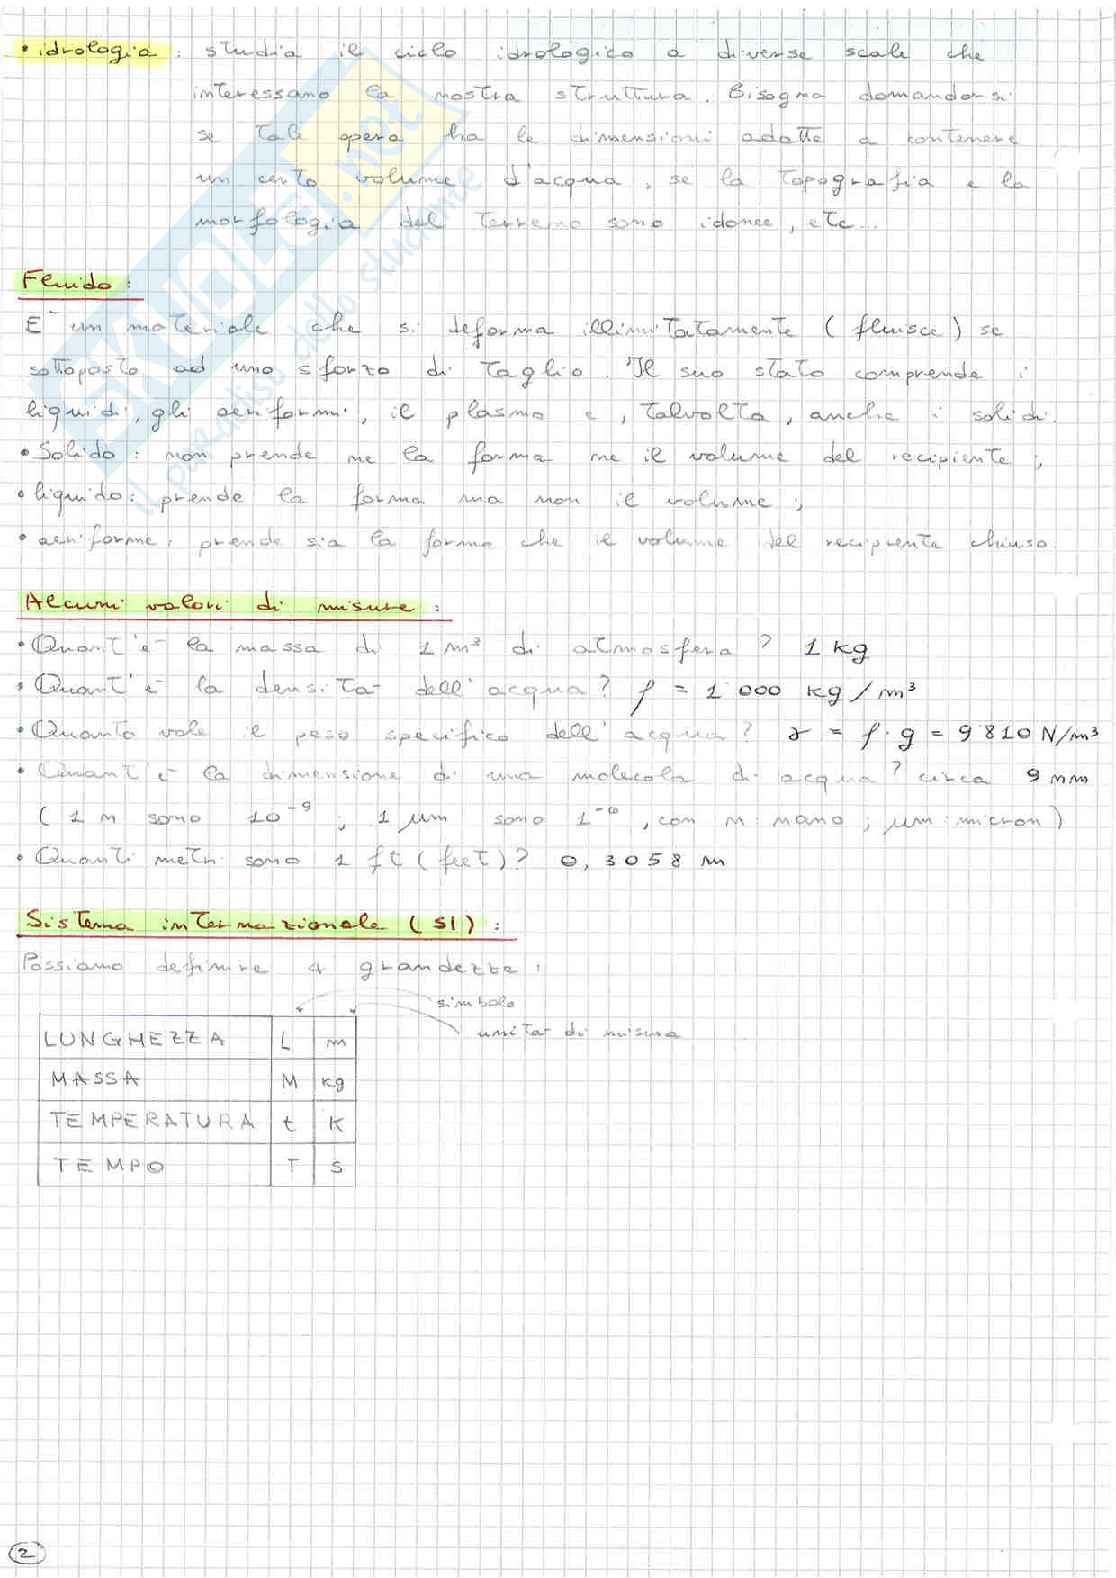 • idrologia : studia il ciclo idrologico a diverse scale che
interessano la nostra struttura. Bisogna domandarsi
se tale opera ha le dimensioni adatte a contenere
un certo volume d'acqua, se la topografia e la
morfologia del terreno sono idonee, etc...
Fluido :
E' un materiale che si deforma illimitatamente ( fluisce ) se
sottoposto ad uno sforzo di taglio. Il suo stato comprende i
liquidi, gli aeriformi, il plasma e, talvolta, anche i solidi.
• Solido : non prende ne la forma ne il volume del recipiente ;
• liquido : prende la forma ma non il volume ;
• aeriforme : prende sia la forma che il volume del recipiente chiuso.
Alcuni valori di misure :
• Quant'è la massa di 1 m³ di atmosfera ? 1 kg
• Quant'è la densità dell'acqua ? ρ = 1 000 kg / m³
• Quanto vale il peso specifico dell'acqua ? γ = ρ · g = 9810 N/m³
• Quant'è la dimensione di una molecola di acqua ? circa 9 nm
( 1 n sono 10⁻⁹ ; 1 μm sono , con n : nano ; μm : micron )
• Quanti metri sono 1 ft ( feet ) ? 0,3058 m
Sistema internazionale ( SI ) :
Possiamo definire 4 grandezze :
simbolo
unità di misura
LUNGHEZZA L m
MASSA M kg
TEMPERATURA t K
TEMPO T s
2
SKUOLA.net
il paradiso dello studente